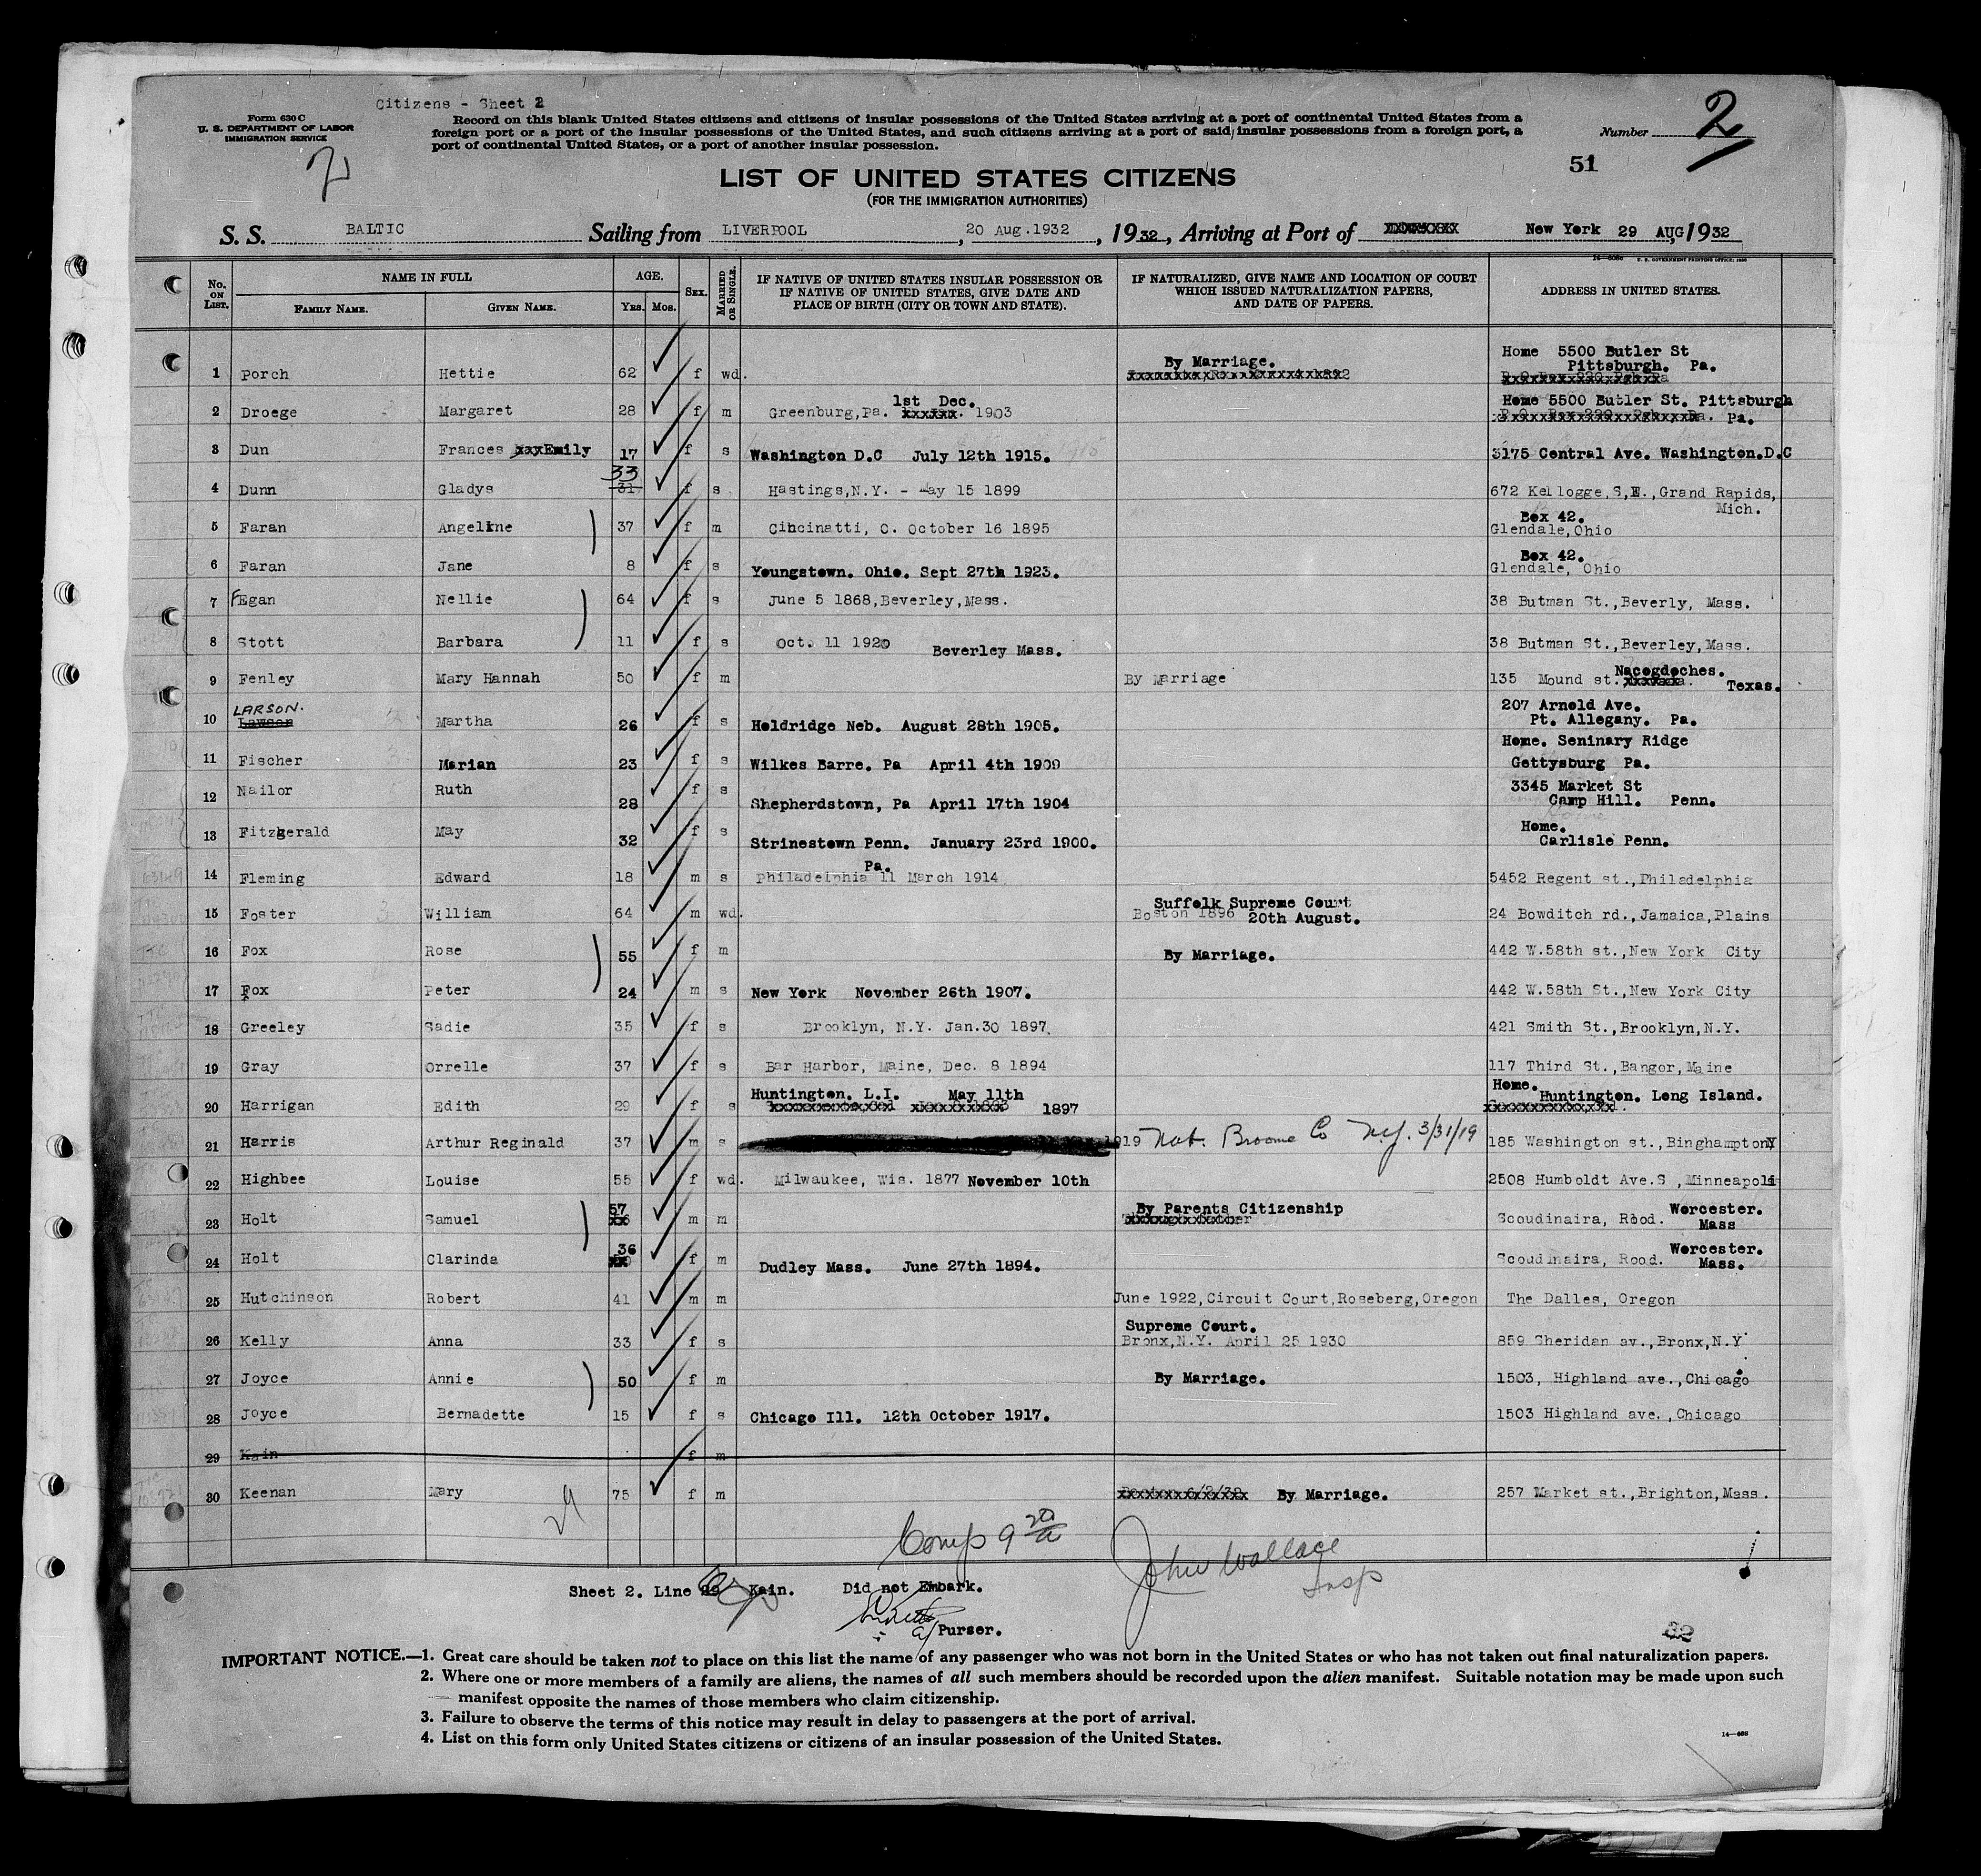 Citizens - Sheet 2
Form 630 C
U. S. DEPARTMENT OF LABOR
IMMIGRATION SERVICE
2
Record on this blank United States citizens and citizens of insular possessions of the United States arriving at a port of continental United States from a
foreign port or a port of the insular possessions of the United States, and such citizens arriving at a port of said insular possessions from a foreign port, a
port of continental United States, or a port of another insular possession.
Number 2
51
LIST OF UNITED STATES CITIZENS
(FOR THE IMMIGRATION AUTHORITIES)
S. S. BALTIC Sailing from LIVERPOOL, 20 Aug.1932, 1932, Arriving at Port of New York 29 AUG 1932
No. ON LIST. NAME IN FULL FAMILY NAME. GIVEN NAME. AGE. YRS. MOS. SEX. MARRIED OR SINGLE. IF NATIVE OF UNITED STATES INSULAR POSSESSION OR IF NATIVE OF UNITED STATES, GIVE DATE AND PLACE OF BIRTH (CITY OR TOWN AND STATE). IF NATURALIZED, GIVE NAME AND LOCATION OF COURT WHICH ISSUED NATURALIZATION PAPERS, AND DATE OF PAPERS. ADDRESS IN UNITED STATES.
1 Porch Hettie 62 f wd. By Marriage. Home 5500 Butler St Pittsburgh. Pa.
2 Droege Margaret 28 f m Greenburg,Pa. 1st Dec. 1903 Home 5500 Butler St. Pittsburgh Pa.
3 Dun Frances xxxEmily 17 f s Washington D.C July 12th 1915. 3175 Central Ave. Washington.D.C
4 Dunn Gladys 31 33 f s Hastings,N.Y. - May 15 1899 672 Kellogge,S,E.,Grand Rapids, Mich.
5 Faran Angeline 37 f m Cincinatti, O. October 16 1895 Box 42. Glendale,Ohio
6 Faran Jane 8 f s Youngstown. Ohio. Sept 27th 1923. Box 42. Glendale, Ohio
7 FEgan Nellie 64 f s June 5 1868,Beverley,Mass. 38 Butman St.,Beverly, Mass.
8 Stott Barbara 11 f s Oct. 11 1920 Beverley Mass. 38 Butman St.,Beverley,Mass.
9 Fenley Mary Hannah 50 f m By Marriage 135 Mound st. Nacogdoches. Texas.
10 Lawson LARSON. Martha 26 f s Holdridge Neb. August 28th 1905. 207 Arnold Ave. Pt. Allegany. Pa.
11 Fischer Marian 23 f s Wilkes Barre. Pa April 4th 1909 Home. Seninary Ridge Gettysburg Pa.
12 Nailor Ruth 28 f s Shepherdstown, Pa April 17th 1904 3345 Market St Camp Hill. Penn.
13 Fitzgerald May 32 f s Strinestown Penn. January 23rd 1900. Home. Carlisle Penn.
14 Fleming Edward 18 m s Philadelphia Pa. 11 March 1914 5452 Regent st.,Philadelphia
15 Foster William 64 m wd. Suffolk Supreme Court Boston 1896 20th August. 24 Bowditch rd.,Jamaica,Plains
16 Fox Rose 55 f m By Marriage. 442 W.58th st.,New York City
17 Fox Peter 24 m s New York November 26th 1907. 442 W.58th St.,New York City
18 Greeley Sadie 35 f s Brooklyn, N.Y. Jan.30 1897 421 Smith St.,Brooklyn,N.Y.
19 Gray Orrelle 37 f s Bar Harbor, Maine, Dec. 8 1894 117 Third St.,Bangor,Maine
20 Harrigan Edith 29 f s Huntington. L.I. May 11th 1897 Home. Huntington. Long Island.
21 Harris Arthur Reginald 37 m s 1919 Nat. Broome Co N.Y. 3/31/19 185 Washington st.,BinghamptonNY
22 Highbee Louise 55 f wd. Milwaukee, Wis. 1877 November 10th 2508 Humboldt Ave.S ,Minneapoli
23 Holt Samuel 57 m m By Parents Citizenship Scoudinaira, Rood. Worcester. Mass
24 Holt Clarinda 36 f m Dudley Mass. June 27th 1894. Scoudinaira, Rood. Worcester. Mass.
25 Hutchinson Robert 41 m m June 1922,Circuit Court,Roseberg,Oregon The Dalles, Oregon
26 Kelly Anna 33 f s Supreme Court. Bronx,N.Y. April 25 1930 859 Sheridan av.,Bronx,N.Y
27 Joyce Annie 50 f m By Marriage. 1503, Highland ave.,Chicago
28 Joyce Bernadette 15 f s Chicago Ill. 12th October 1917. 1503 Highland ave.,Chicago
29 Kain f m
30 Keenan Mary 75 f m By Marriage. 257 Market st.,Brighton,Mass.
29
Comp 9 20/a
John Wallace
Insp
Sheet 2. Line 29 Kain. Did not Embark.
Purser.
32
IMPORTANT NOTICE.—1. Great care should be taken not to place on this list the name of any passenger who was not born in the United States or who has not taken out final naturalization papers.
2. Where one or more members of a family are aliens, the names of all such members should be recorded upon the alien manifest. Suitable notation may be made upon such
manifest opposite the names of those members who claim citizenship.
3. Failure to observe the terms of this notice may result in delay to passengers at the port of arrival.
4. List on this form only United States citizens or citizens of an insular possession of the United States.